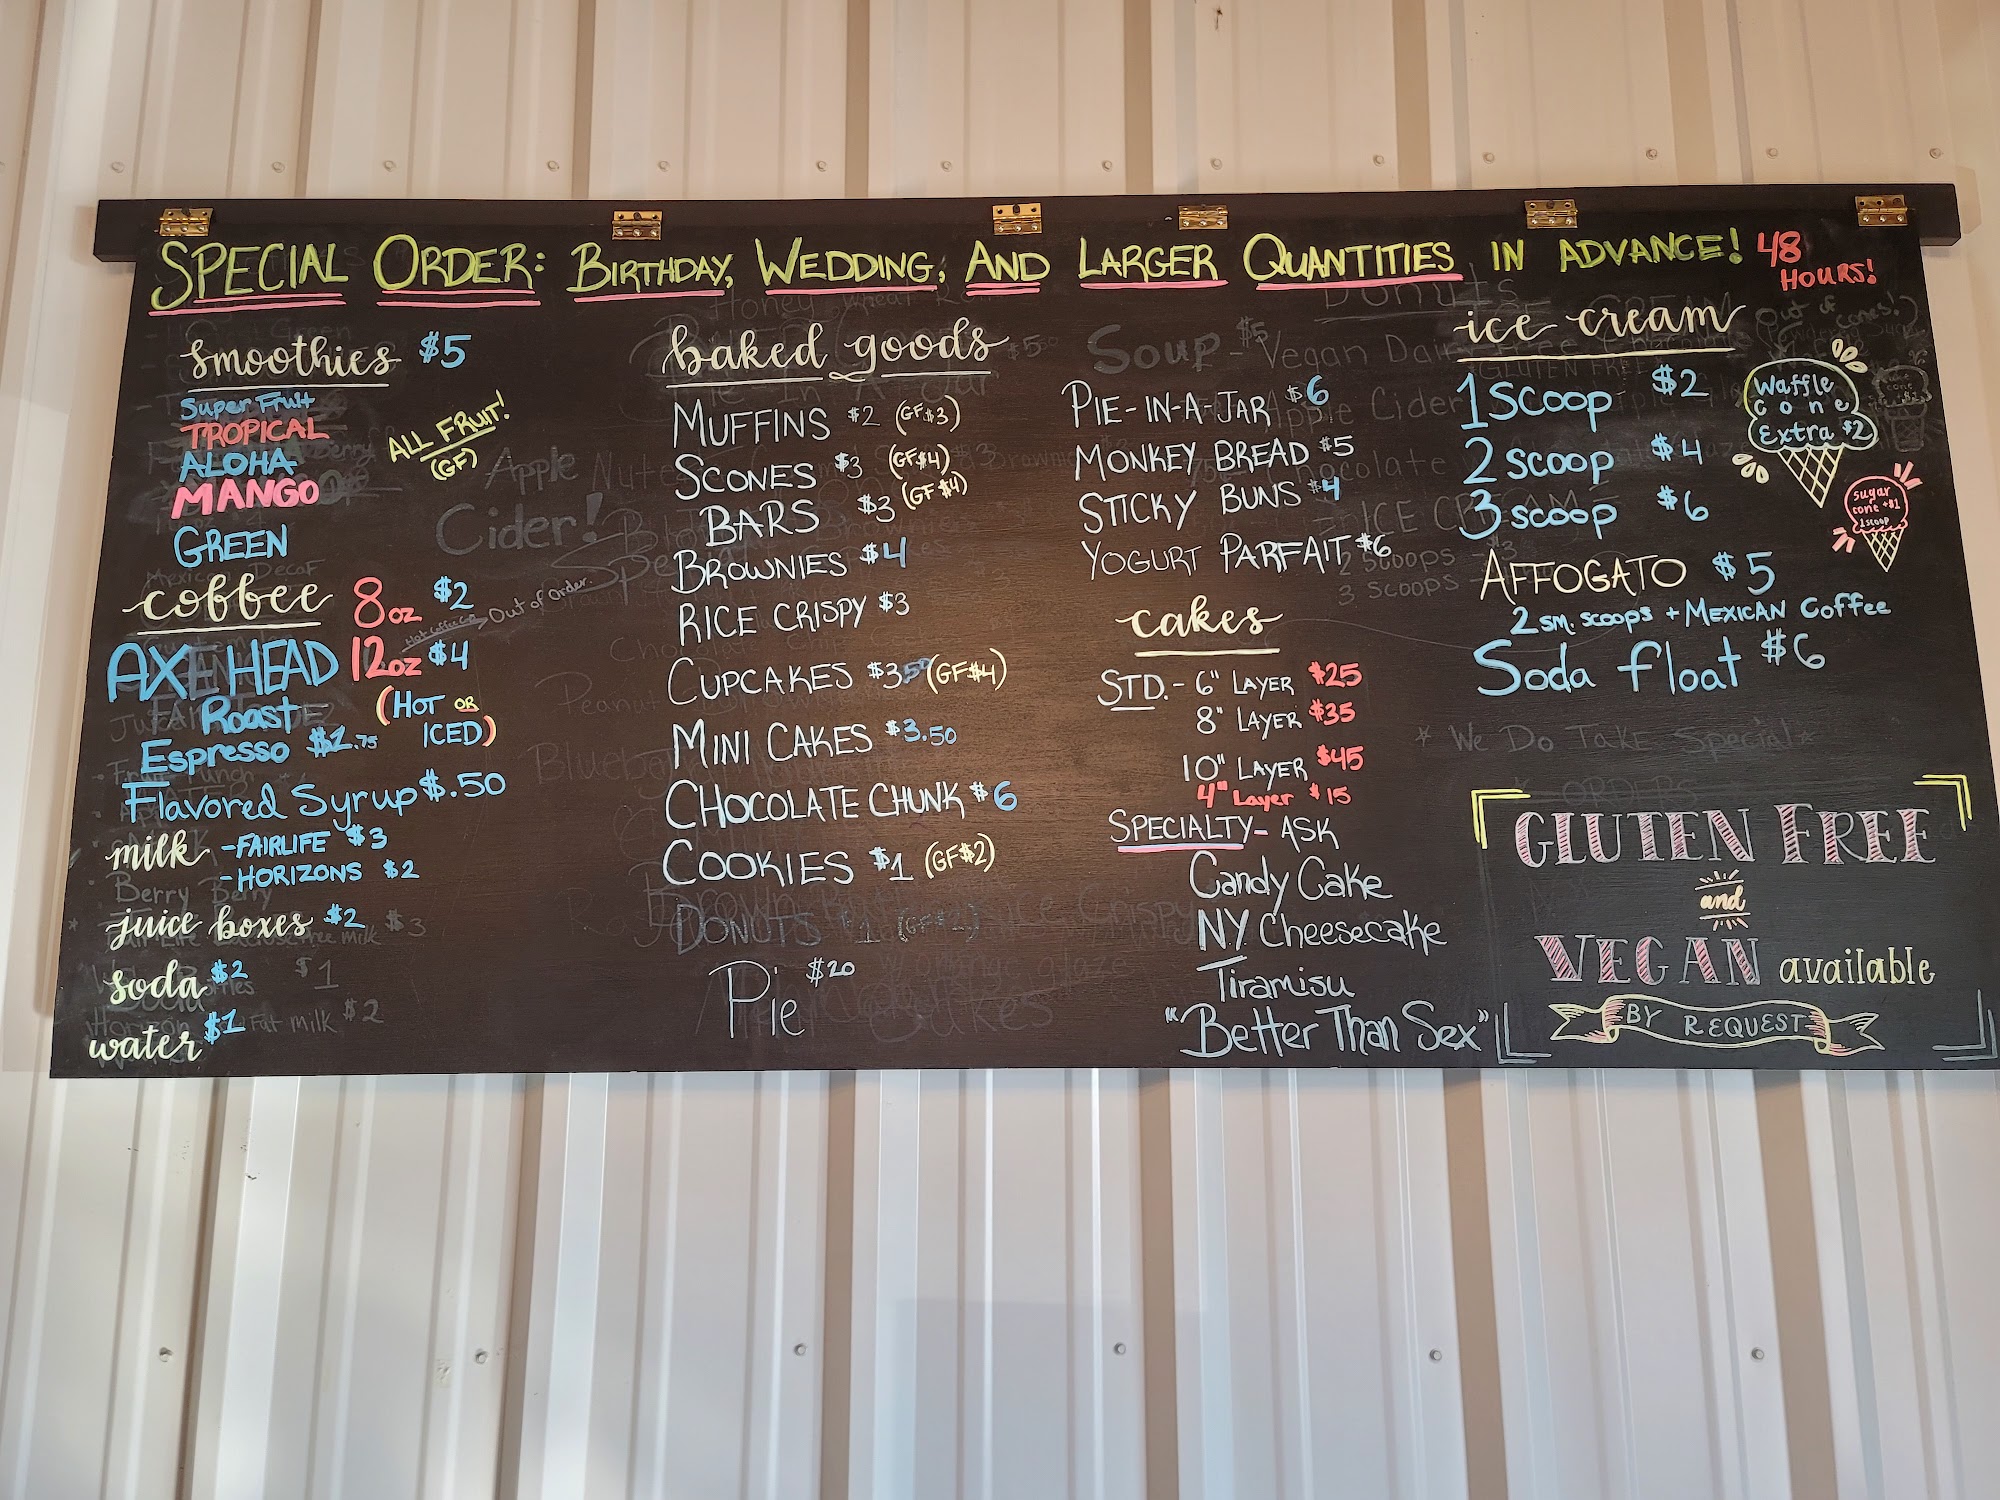 SPECIAL ORDER: BIRTHDAY, WEDDING, AND LARGER QUANTITIES IN ADVANCE! 48 HOURS!
smoothies $5
Super Fruit
TROPICAL
ALOHA
MANGO
GREEN
ALL FRUIT!
(GF)
Apple
Cider!
coffee 8oz $2
Out of Order.
AXE HEAD 12oz $4
Roast (HOT OR ICED)
Espresso $1.75
Flavored Syrup $.50
milk -FAIRLIFE $3
-HORIZONS $2
juice boxes $2
soda $2
water $1
baked goods
MUFFINS $2 (GF $3)
SCONES $3 (GF $4)
BARS $3 (GF $4)
BROWNIES $4
RICE CRISPY $3
CUPCAKES $3.50 (GF $4)
MINI CAKES $3.50
CHOCOLATE CHUNK $6
COOKIES $1 (GF $2)
DONUTS
Pie $20
Soup $5
PIE-IN-A-JAR $6
MONKEY BREAD $5
STICKY BUNS $4
YOGURT PARFAIT $6
cakes
STD. - 6" LAYER $25
8" LAYER $35
10" LAYER $45
4" Layer $15
SPECIALTY - ASK
Candy Cake
NY Cheesecake
Tiramisu
"Better Than Sex"
Donuts
ice cream
out of cones!
1 SCOOP $2
2 SCOOP $4
3 SCOOP $6
Waffle
Cone
Extra $2
sugar
cone +$1
1 scoop
AFFOGATO $5
2 SM. SCOOPS + MEXICAN COFFEE
Soda Float $6
* We Do Take Special *
ORDERS
GLUTEN FREE
and
VEGAN available
BY REQUEST